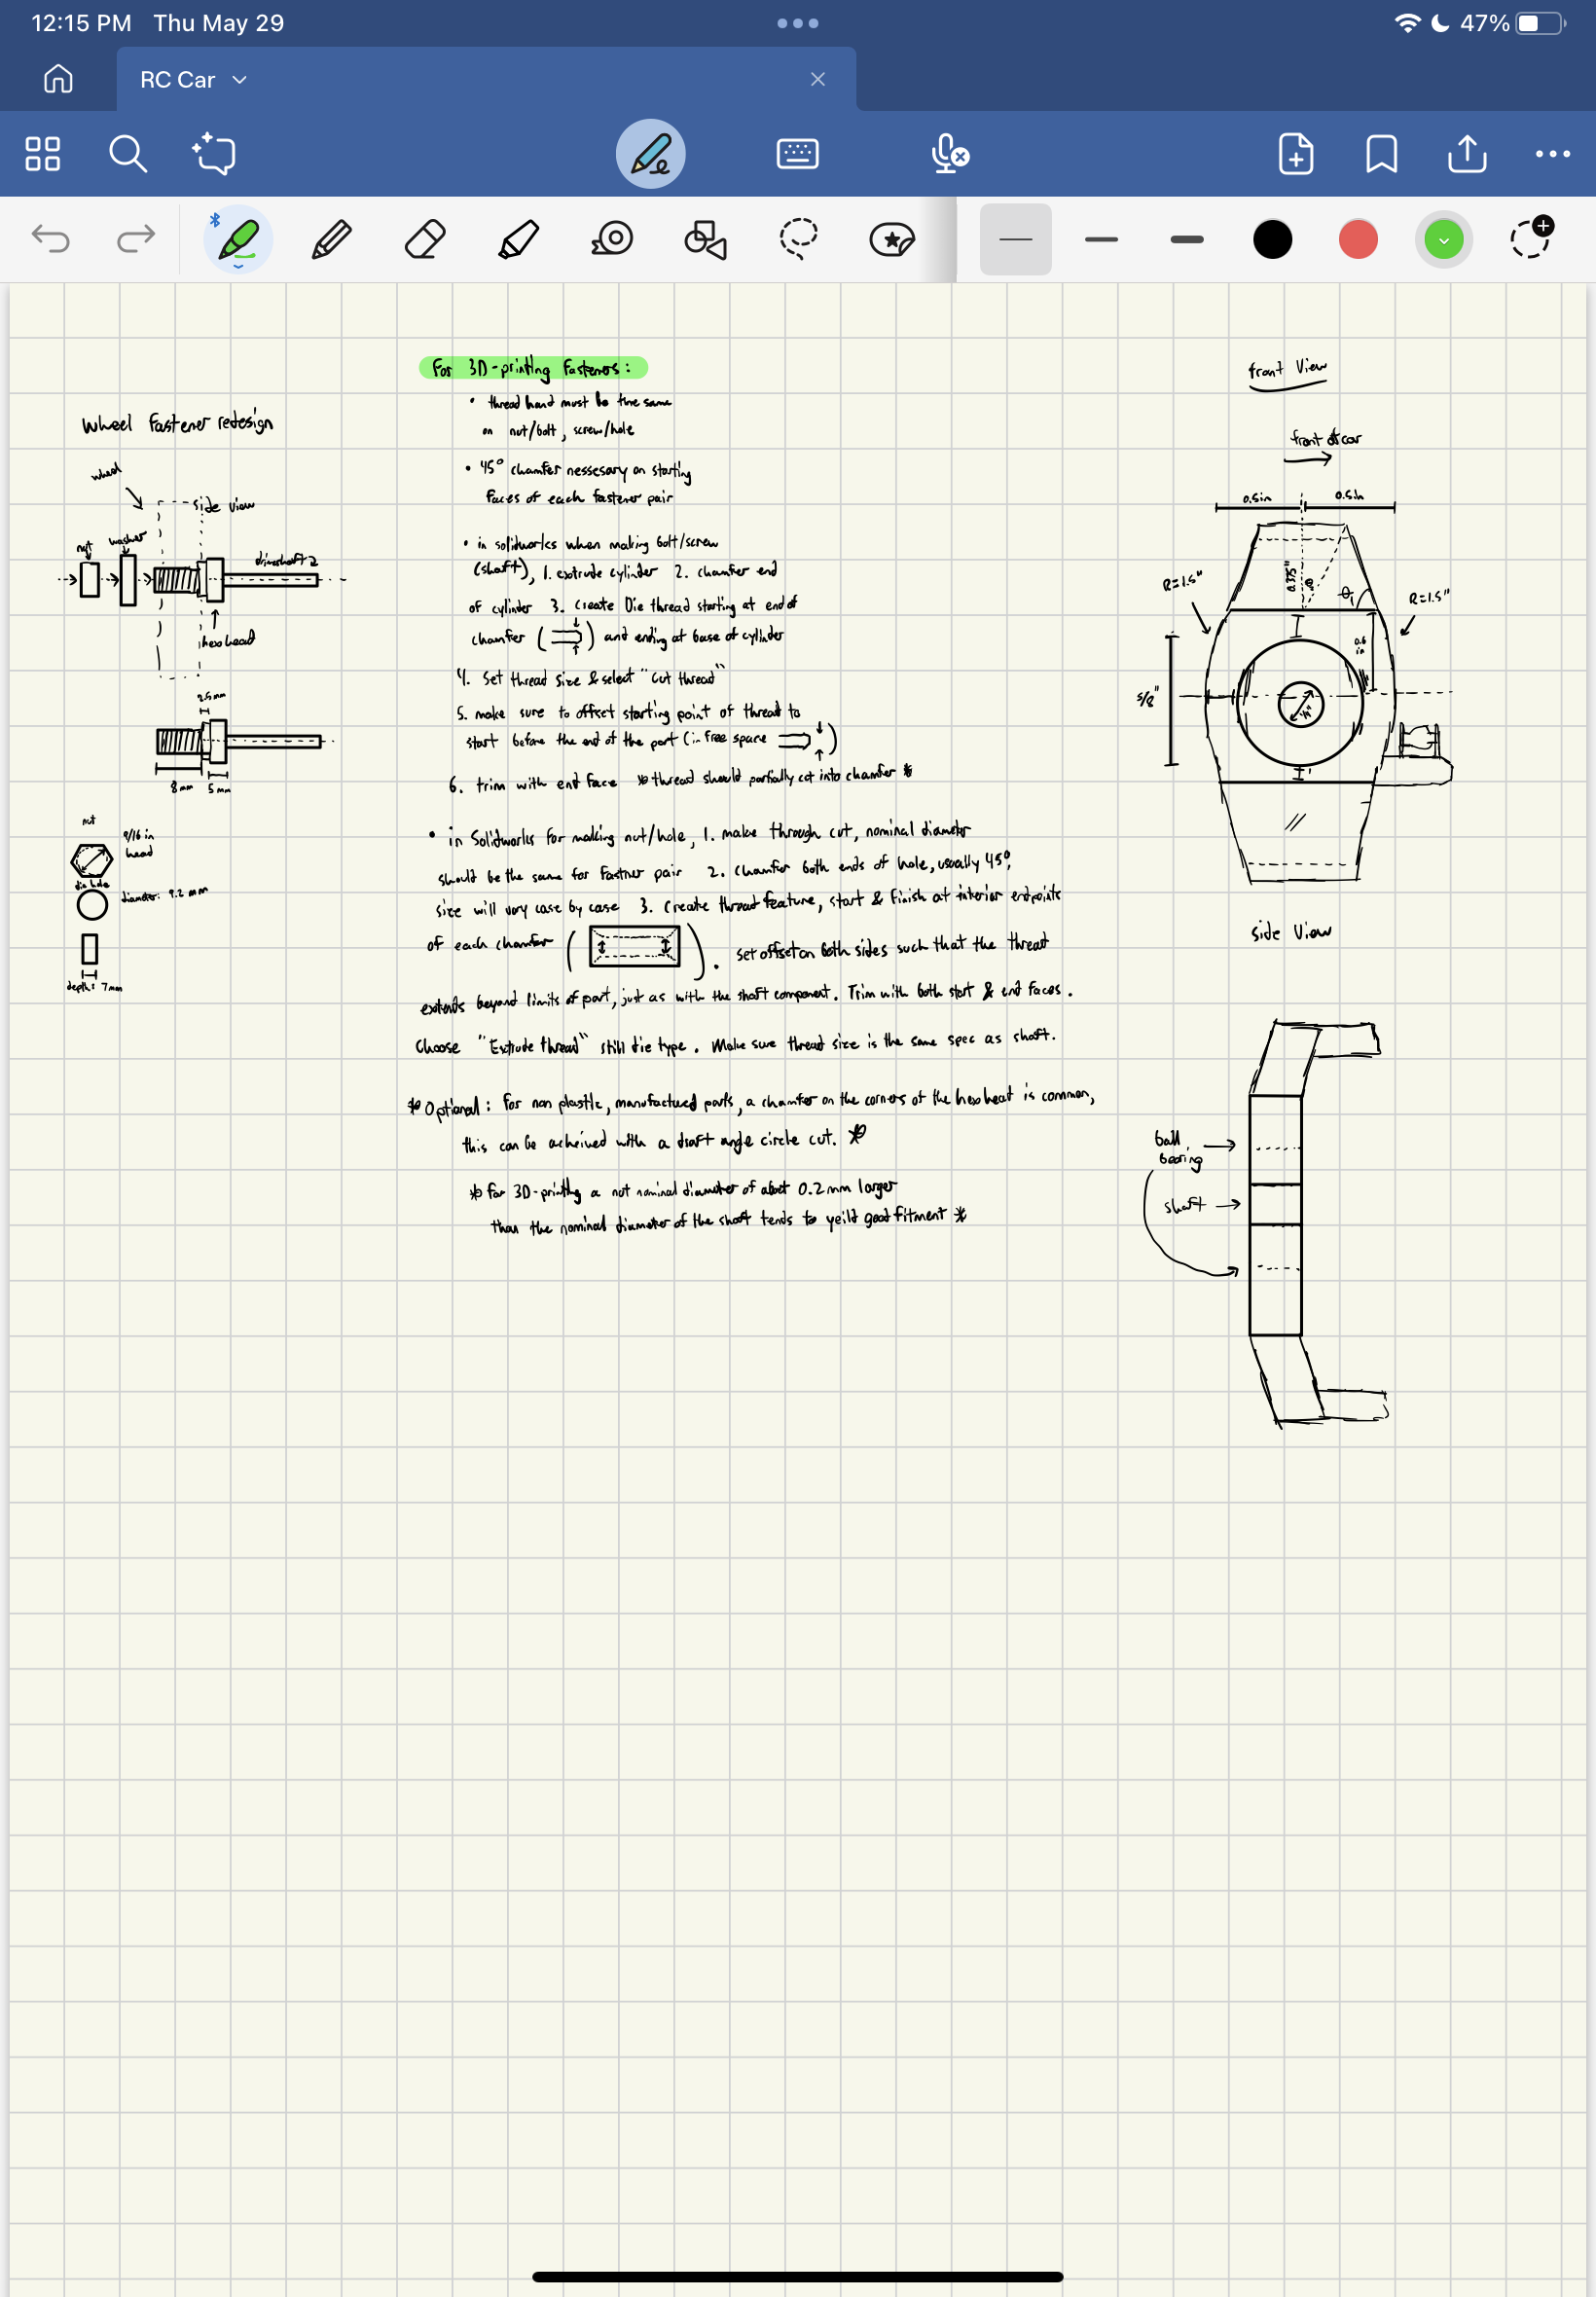 12:15 PM Thu May 29
47%
RC Car
Wheel Fastener redesign
wheel
side view
nut
washer
driveshaft 2
hex head
2.5mm
8mm 5mm
nut
9/16 in
head
die hole
diameter: 9.2 mm
depth: 7mm
For 3D-printing Fasteners:
• thread hand must be the same
on nut/bolt, screw/hole
• 45° chamfer nessesary on starting
faces of each fastener pair
• in solidworks when making bolt/screw
(shaft), 1. extrude cylinder 2. chamfer end
of cylinder 3. create Die thread starting at end of
chamfer ( ) and ending at base of cylinder
4. Set thread size & select "cut thread"
5. make sure to offset starting point of thread to
start before the end of the part (in free space )
6. trim with end face * thread should partially cut into chamfer *
• in Solidworks for making nut/hole, 1. make through cut, nominal diameter
should be the same for fastner pair 2. Chamfer both ends of hole, usually 45°,
size will vary case by case 3. Create thread feature, start & finish at interior endpoints
of each chamfer ( ). set offset on both sides such that the thread
extends beyond limits of part, just as with the shaft component. Trim with both start & end faces.
Choose "Extrude thread" still die type. Make sure thread size is the same spec as shaft.
* Optional: for non plastic, manufactured parts, a chamfer on the corners of the hex head is common,
this can be acheived with a draft angle circle cut. *
* for 3D-printing a nut nominal diameter of about 0.2mm larger
than the nominal diameter of the shaft tends to yeild good fitment *
front View
front of car
0.5in 0.5in
R=1.5"
0.375"
θ
θ₁
R=1.5"
0.6
in
5/8"
side View
ball
bearing
shaft